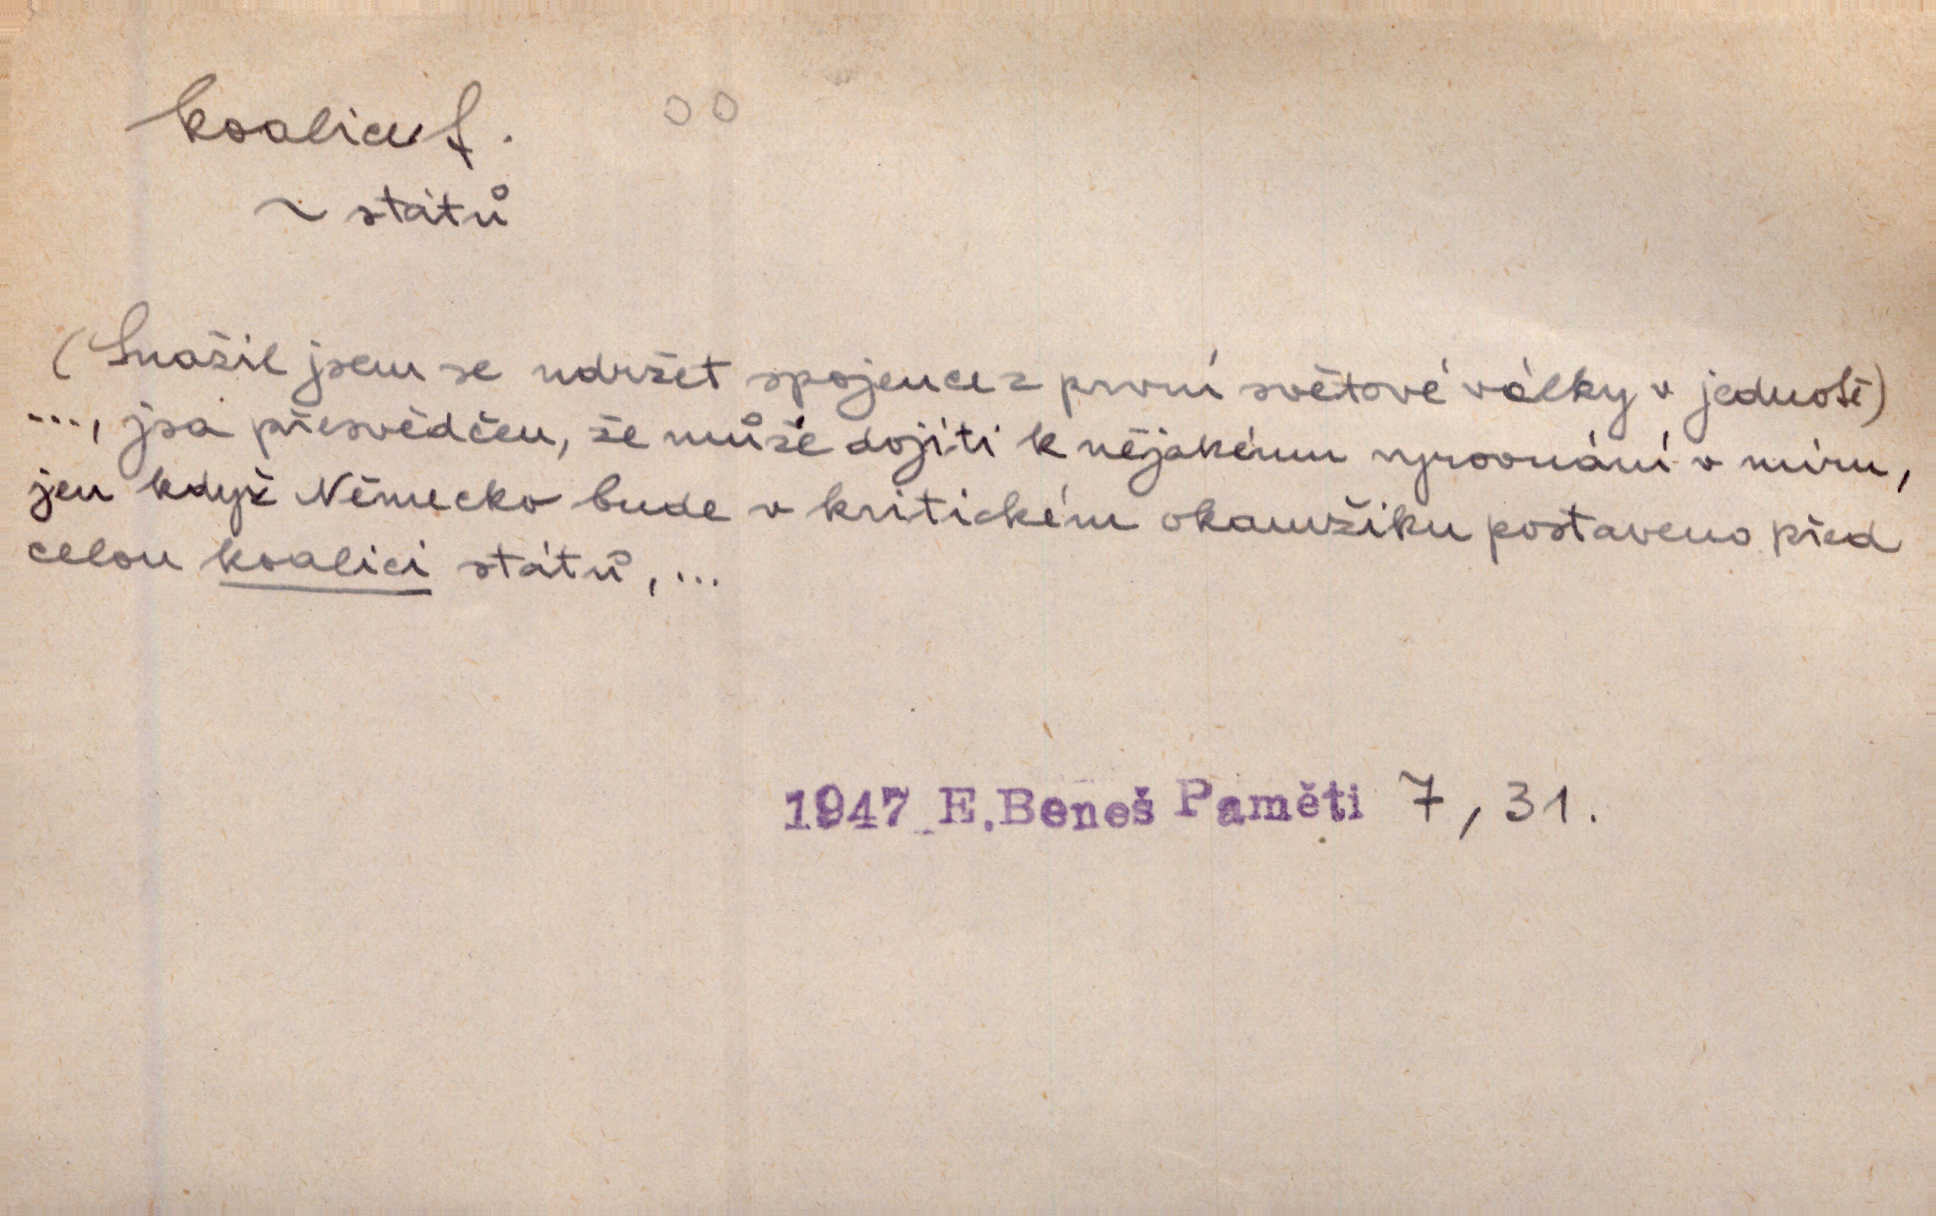 koalice f.
~ států
(Snažil jsem se udržet spojence z první světové války v jednotě)
..., jsa přesvědčen, že může dojíti k nějakému vyrovnání v míru,
jen když Německo bude v kritickém okamžiku postaveno před
celou koalici států, ...
1947 E. Beneš Paměti 7, 31.